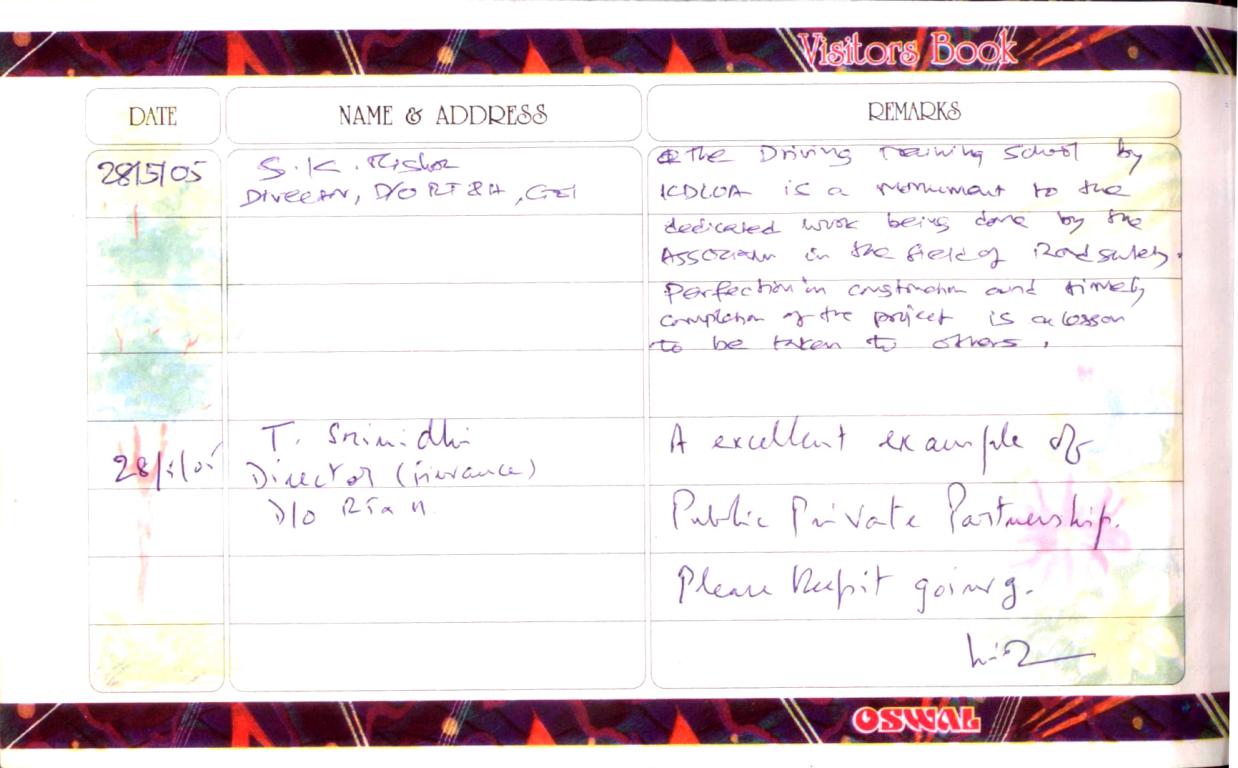 Visitors Book
DATE
NAME & ADDRESS
REMARKS
28/5/05
S. K. Mishra
Director, D/O RT & H, GOI
The Driving Training School by
KDLOA is a Monument to the
dedicated work being done by the
Association in the field of Road safety.
Perfection in construction and timely
completion of the project is a lesson
to be taken to others.
28/5/05
T. Srinidhi
Director (Finance)
D/O RT & H.
A excellent example of
Public Private Partnership.
Please keep it going.
OSWAL